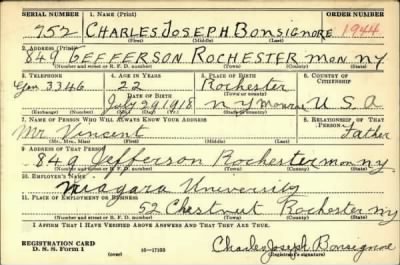 SERIAL NUMBER 1. NAME (Print) ORDER NUMBER
752 CHARLES JOSEPH BONSIGNORE 1944
(First) (Middle) (Last)
2. ADDRESS (Print)
849 JEFFERSON ROCHESTER MON. NY
(Number and street or R. F. D. number) (Town) (County) (State)
3. TELEPHONE 4. AGE IN YEARS 5. PLACE OF BIRTH 6. COUNTRY OF CITIZENSHIP
Gen 3346 22 Rochester
(Town or county)
DATE OF BIRTH
July 29 1918 NY Monroe U.S.A
(Exchange) (Number) (Mo.) (Day) (Yr.) (State or country)
7. NAME OF PERSON WHO WILL ALWAYS KNOW YOUR ADDRESS 8. RELATIONSHIP OF THAT PERSON
Mr. Vincent Father
(Mr., Mrs., Miss) (First) (Middle) (Last)
9. ADDRESS OF THAT PERSON
849 Jefferson Rochester mon ny
(Number and street or R. F. D. number) (Town) (County) (State)
10. EMPLOYER'S NAME
Niagara University
11. PLACE OF EMPLOYMENT OR BUSINESS
52 Chestnut Rochester ny
(Number and street or R. F. D. number) (Town) (County) (State)
I AFFIRM THAT I HAVE VERIFIED ABOVE ANSWERS AND THAT THEY ARE TRUE.
REGISTRATION CARD
D. S. S. Form 1 (over) 16—17105
Charles Joseph Bonsignore
(Registrant's signature)